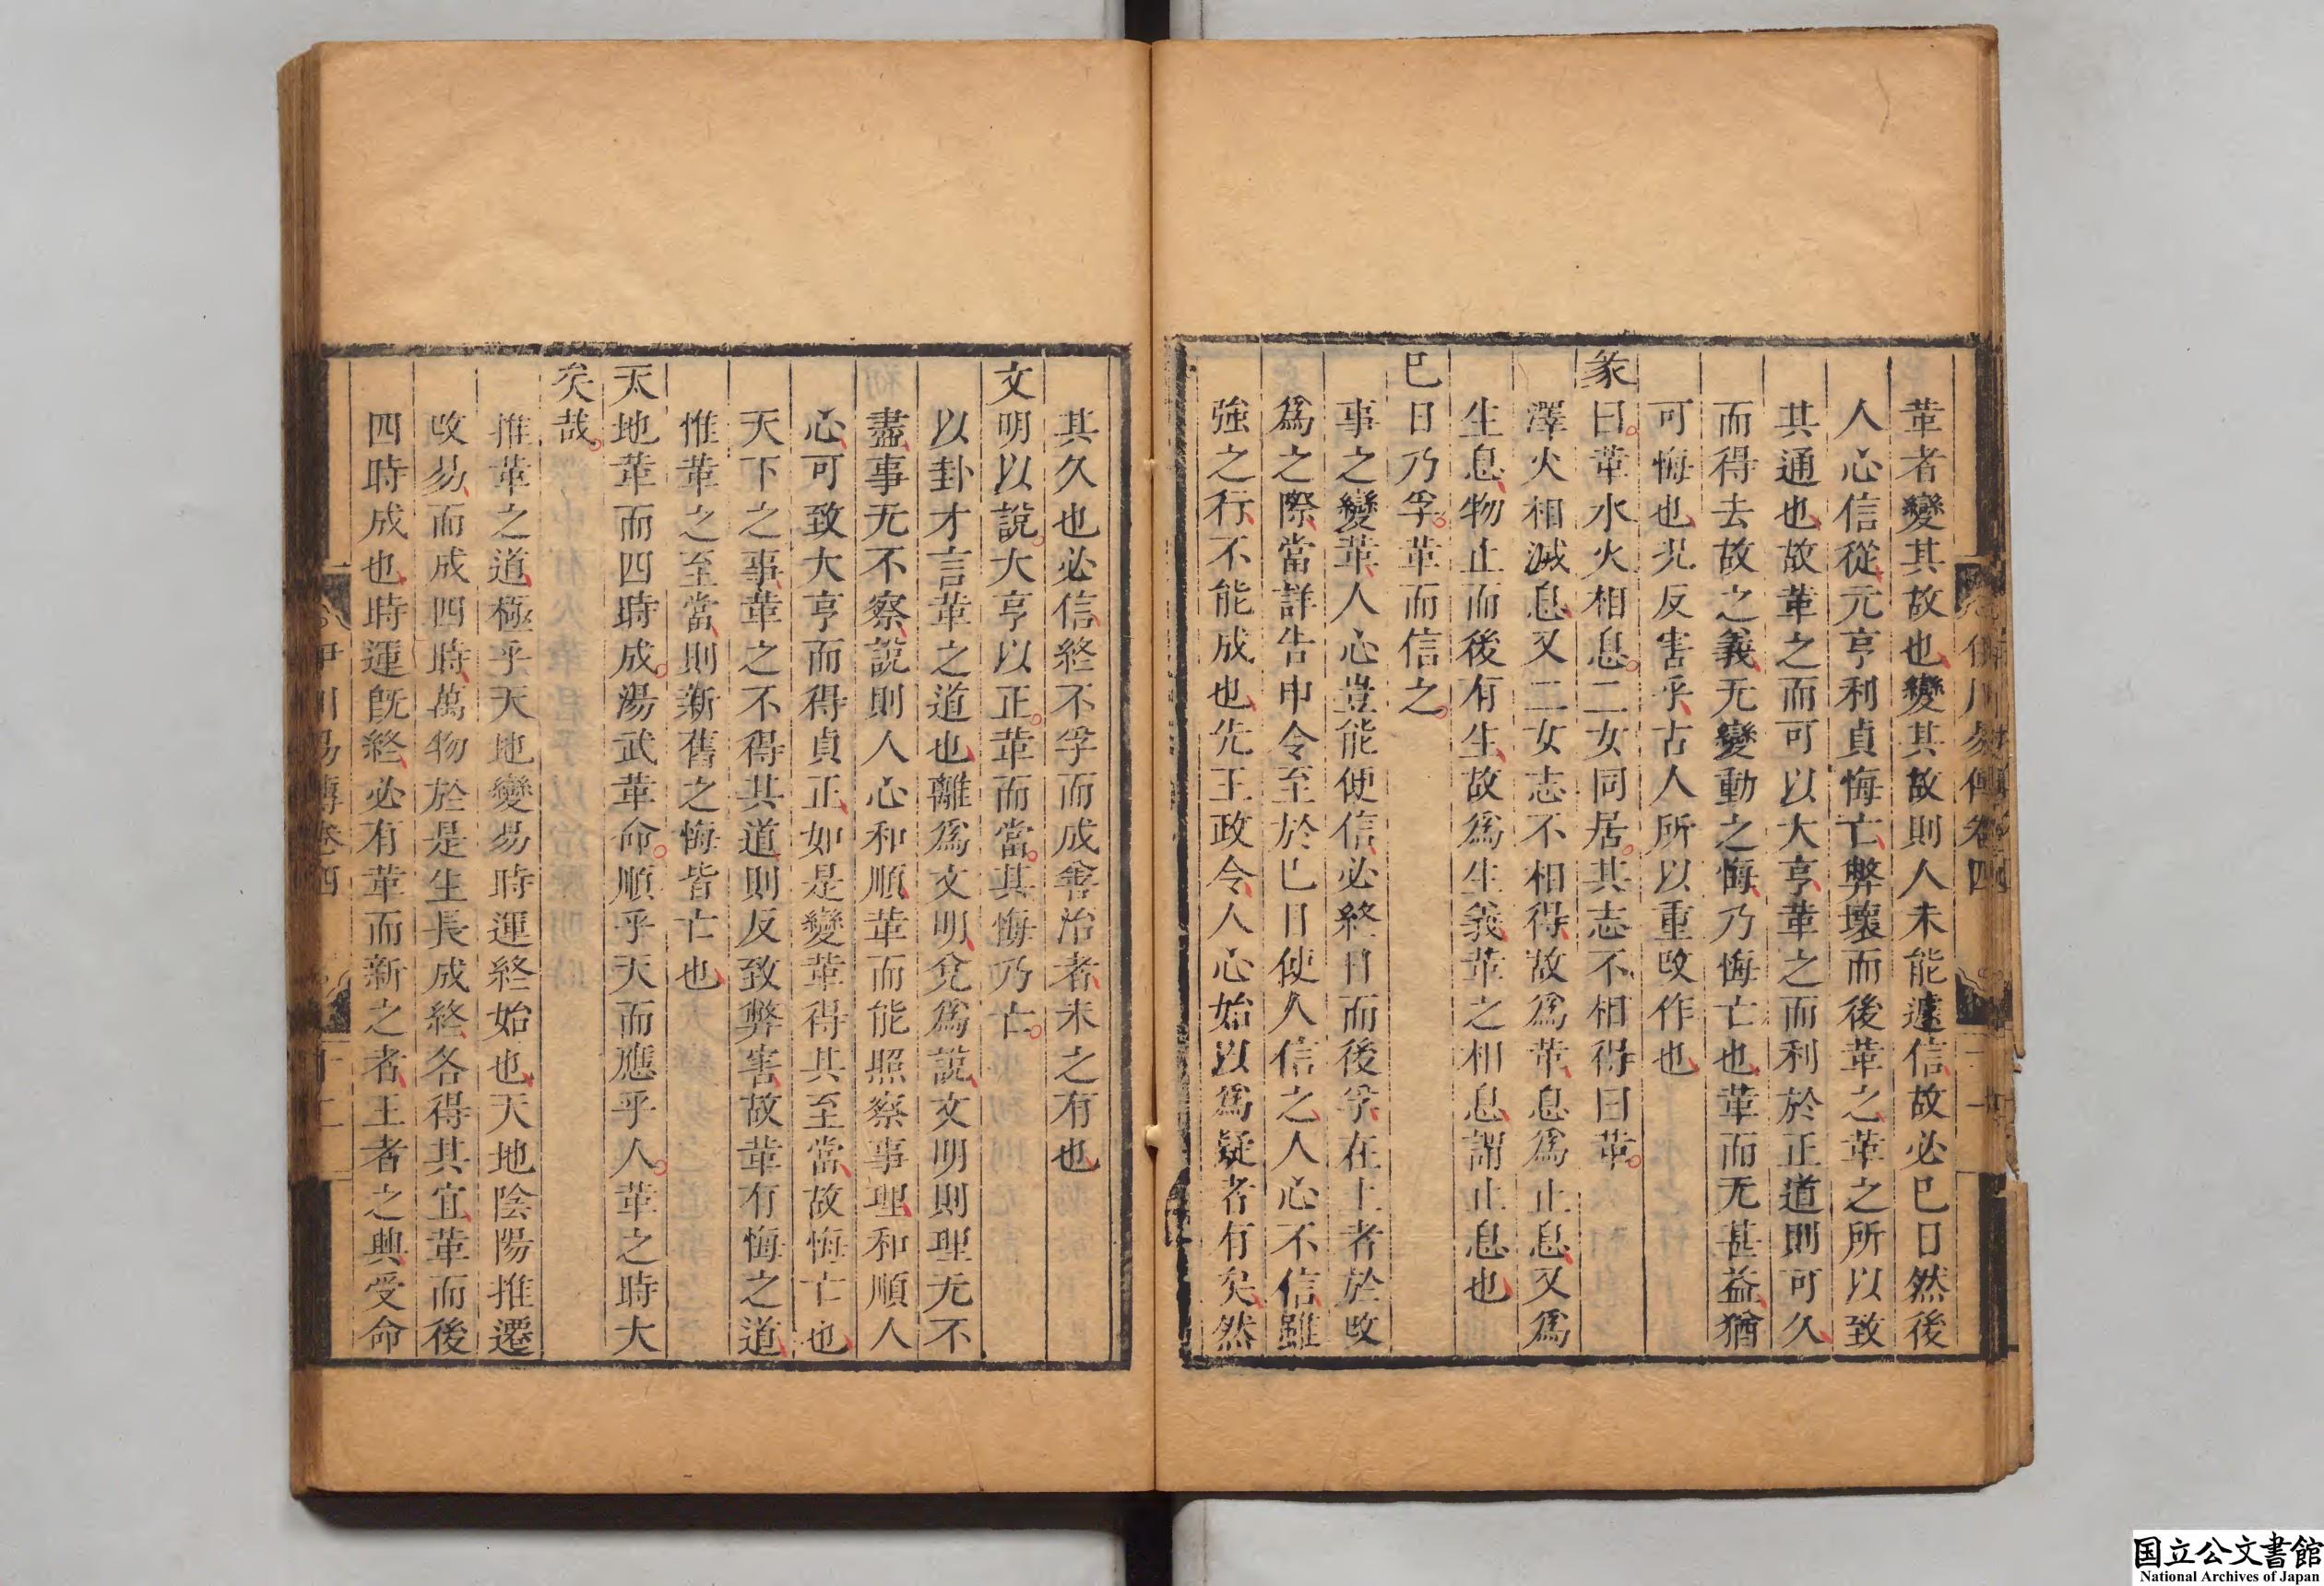 伊川易傳卷四
革者變其故也變其故則人未能遽信故必巳日然後
人心信從元亨利貞悔亡弊壞而後革之革之所以致
其通也故革之而可以大亨革之而利於正道則可久
而得去故之義无變動之悔乃悔亡也革而无甚益猶
可悔也况反害乎古人所以重改作也
彖曰革水火相息二女同居其志不相得曰革
澤火相滅息又二女志不相得故爲革息爲止息又爲
生息物止而後有生故爲生義革之相息謂止息也
巳日乃孚革而信之
事之變革人心豈能便信必終日而後孚在上者於改
爲之際當詳告申令至於巳日使人信之人心不信雖
強之行不能成也先王政令人心始以爲疑者有矣然
其久也必信終不孚而成善治者未之有也
文明以說大亨以正革而當其悔乃亡
以卦才言革之道也離爲文明兌爲說文明則理无不
盡事无不察說則人心和順革而能照察事理和順人
心可致大亨而得貞正如是變革得其至當故悔亡也
天下之事革之不得其道則反致弊害故革有悔之道
惟革之至當則新舊之悔皆亡也
天地革而四時成湯武革命順乎天而應乎人革之時大
矣哉
推革之道極乎天地變易時運終始也天地陰陽推遷
改易而成四時萬物於是生長成終各得其宜革而後
四時成也時運旣終必有革而新之者王者之興受命
伊川易傳卷四
十二
国立公文書館
National Archives of Japan